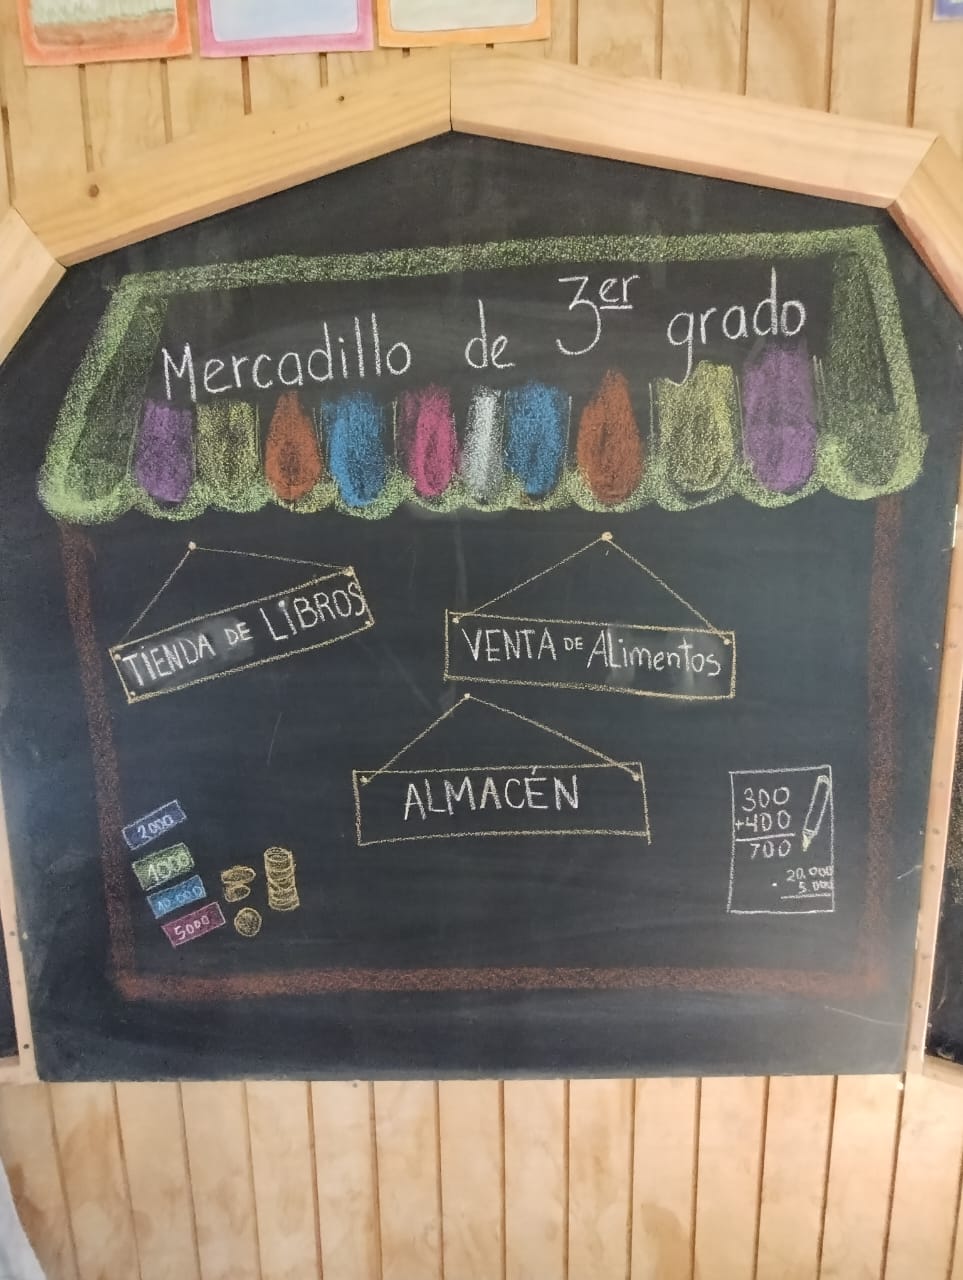 Mercadillo de 3er grado
TIENDA DE LiBROS
VENTA DE ALimentos
ALMACÉN
2000
1000
10.000
5000
300
+400
700
20.000
5.000